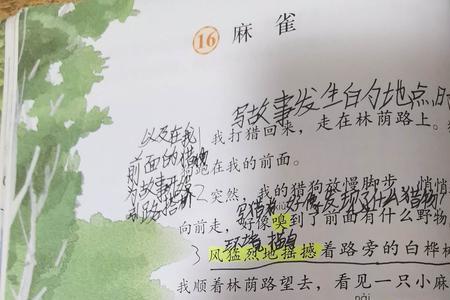 16 麻雀
写故事发生的地点,时
我打猎回来,走在林荫路上。
以及在我
前面的猎物
跑在我的前面。
为故事
2 突然,我的猎狗放慢脚步,悄悄
写猎狗好像发现了什么猎物
向前走,好像嗅到了前面有什么野物
环境描
3 风猛烈地摇撼着路旁的白桦树
我顺着林荫路望去,看见一只小麻